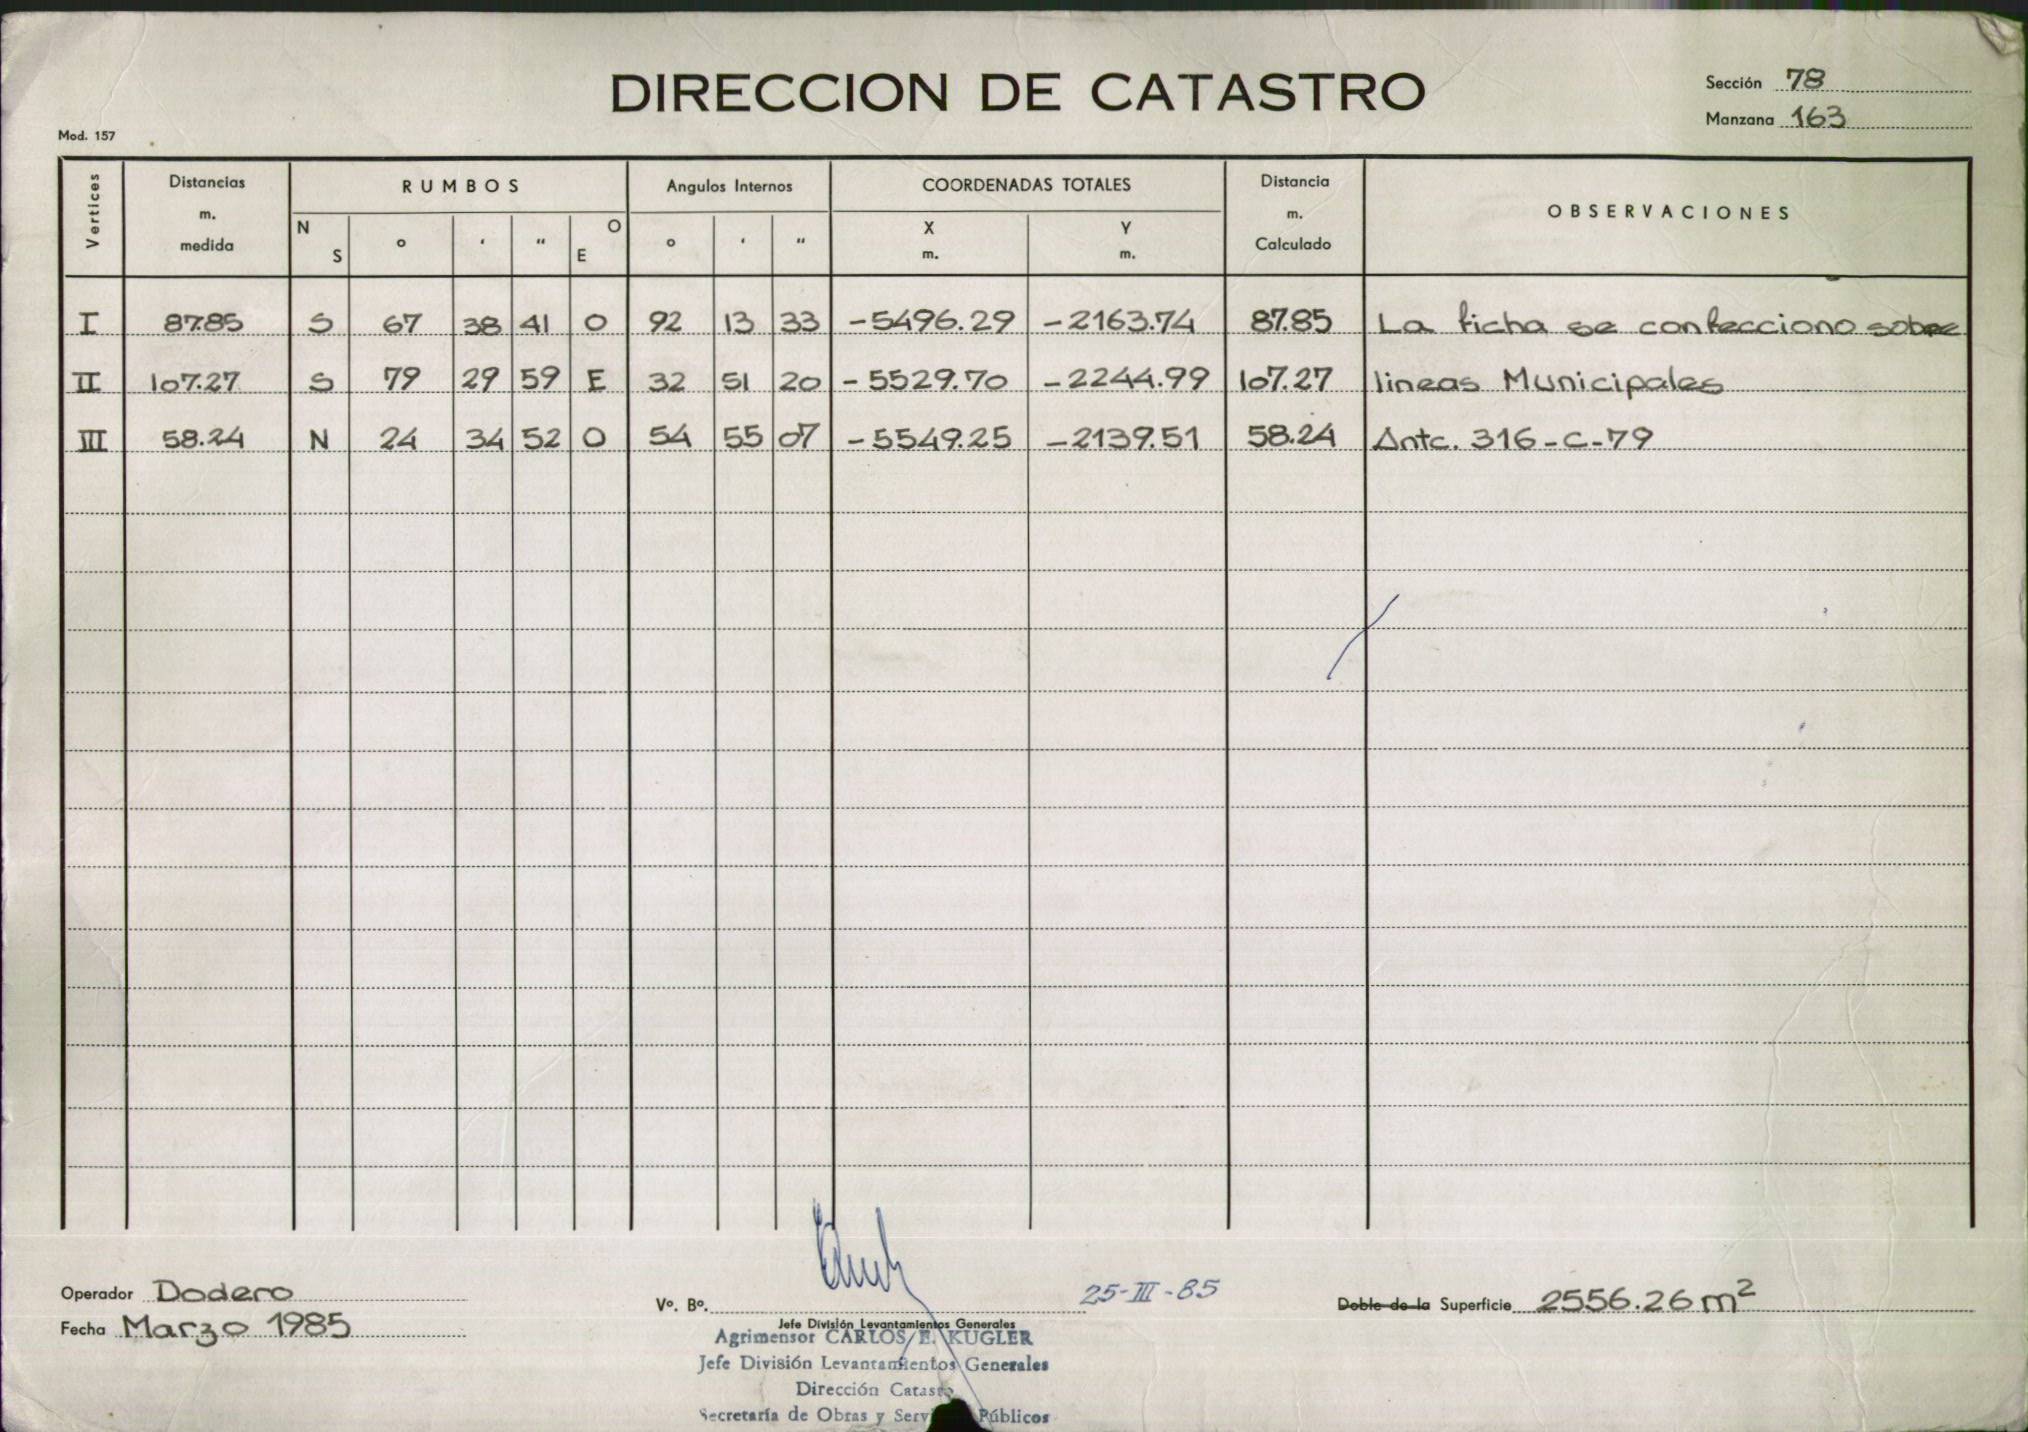 DIRECCION DE CATASTRO
Sección 78
Manzana 163
Mod. 157
Vertices Distancias m. medida RUMBOS N S ° ' " O E Angulos Internos ° ' " COORDENADAS TOTALES X m. Y m. Distancia m. Calculado OBSERVACIONES
I 87.85 S 67 38 41 O 92 13 33 -5496.29 -2163.74 87.85 La ficha se confecciono sobre
II 107.27 S 79 29 59 E 32 51 20 -5529.70 -2244.99 107.27 lineas Municipales
III 58.24 N 24 34 52 O 54 55 07 -5549.25 -2139.51 58.24 Antc. 316-C-79
Operador Dodero
Fecha Marzo 1985
Vº. Bº. 25-III-85
Jefe División Levantamientos Generales
Agrimensor CARLOS E. KUGLER
Jefe División Levantamientos Generales
Dirección Catastro
Secretaría de Obras y Públicos
Doble de la Superficie 2556.26 m²